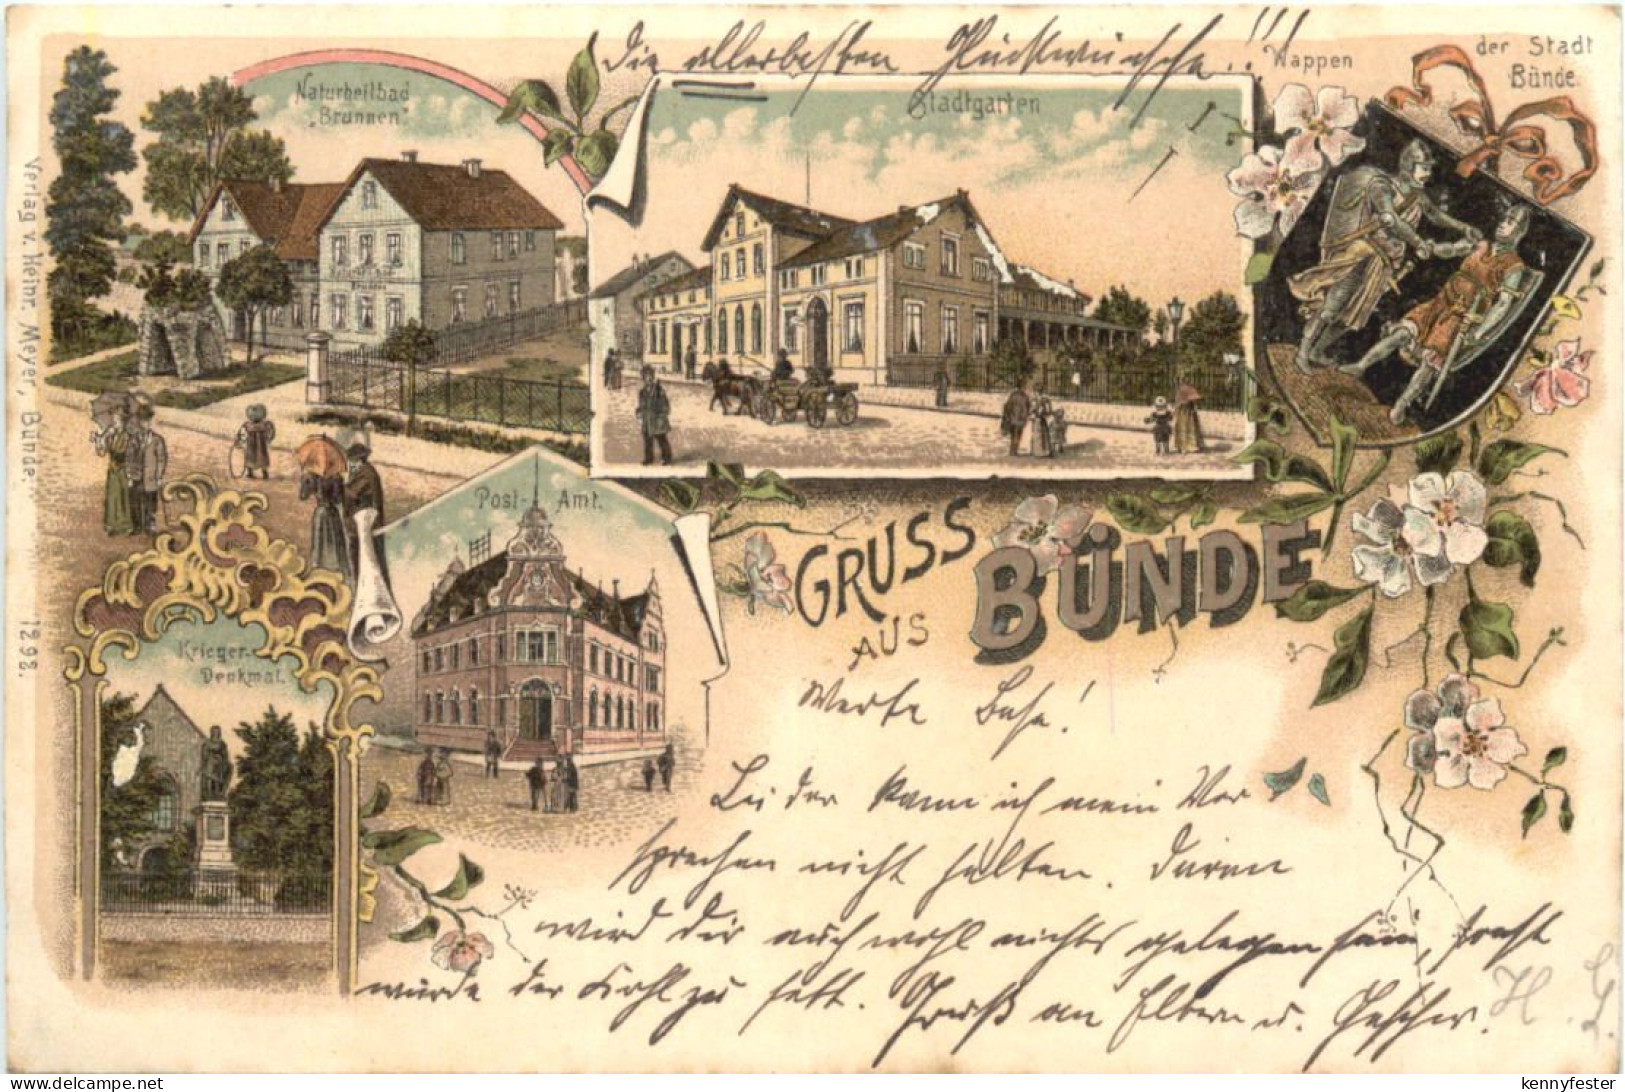 Die allerbesten Glückwünsche!!!
Wappen
der Stadt
Bünde.
Naturheilbad
„Brunnen“.
Stadtgarten
Verlag v. Heinr. Meyer, Bünde.
7298.
Post-Amt.
Krieger-
Denkmal.
GRUSS
AUS
BÜNDE
Werte Base!
Leider kann ich mein Ver
sprechen nicht halten. Daran
wird dir auch wohl nichts gelegen sein, sonst
würde der Kohl zu fett. Gruß an Eltern u. Geschw.
H.
kennyfester